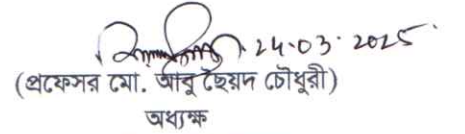 24.03.2025
(প্রফেসর মো. আবু ছৈয়দ চৌধুরী)
অধ্যক্ষ